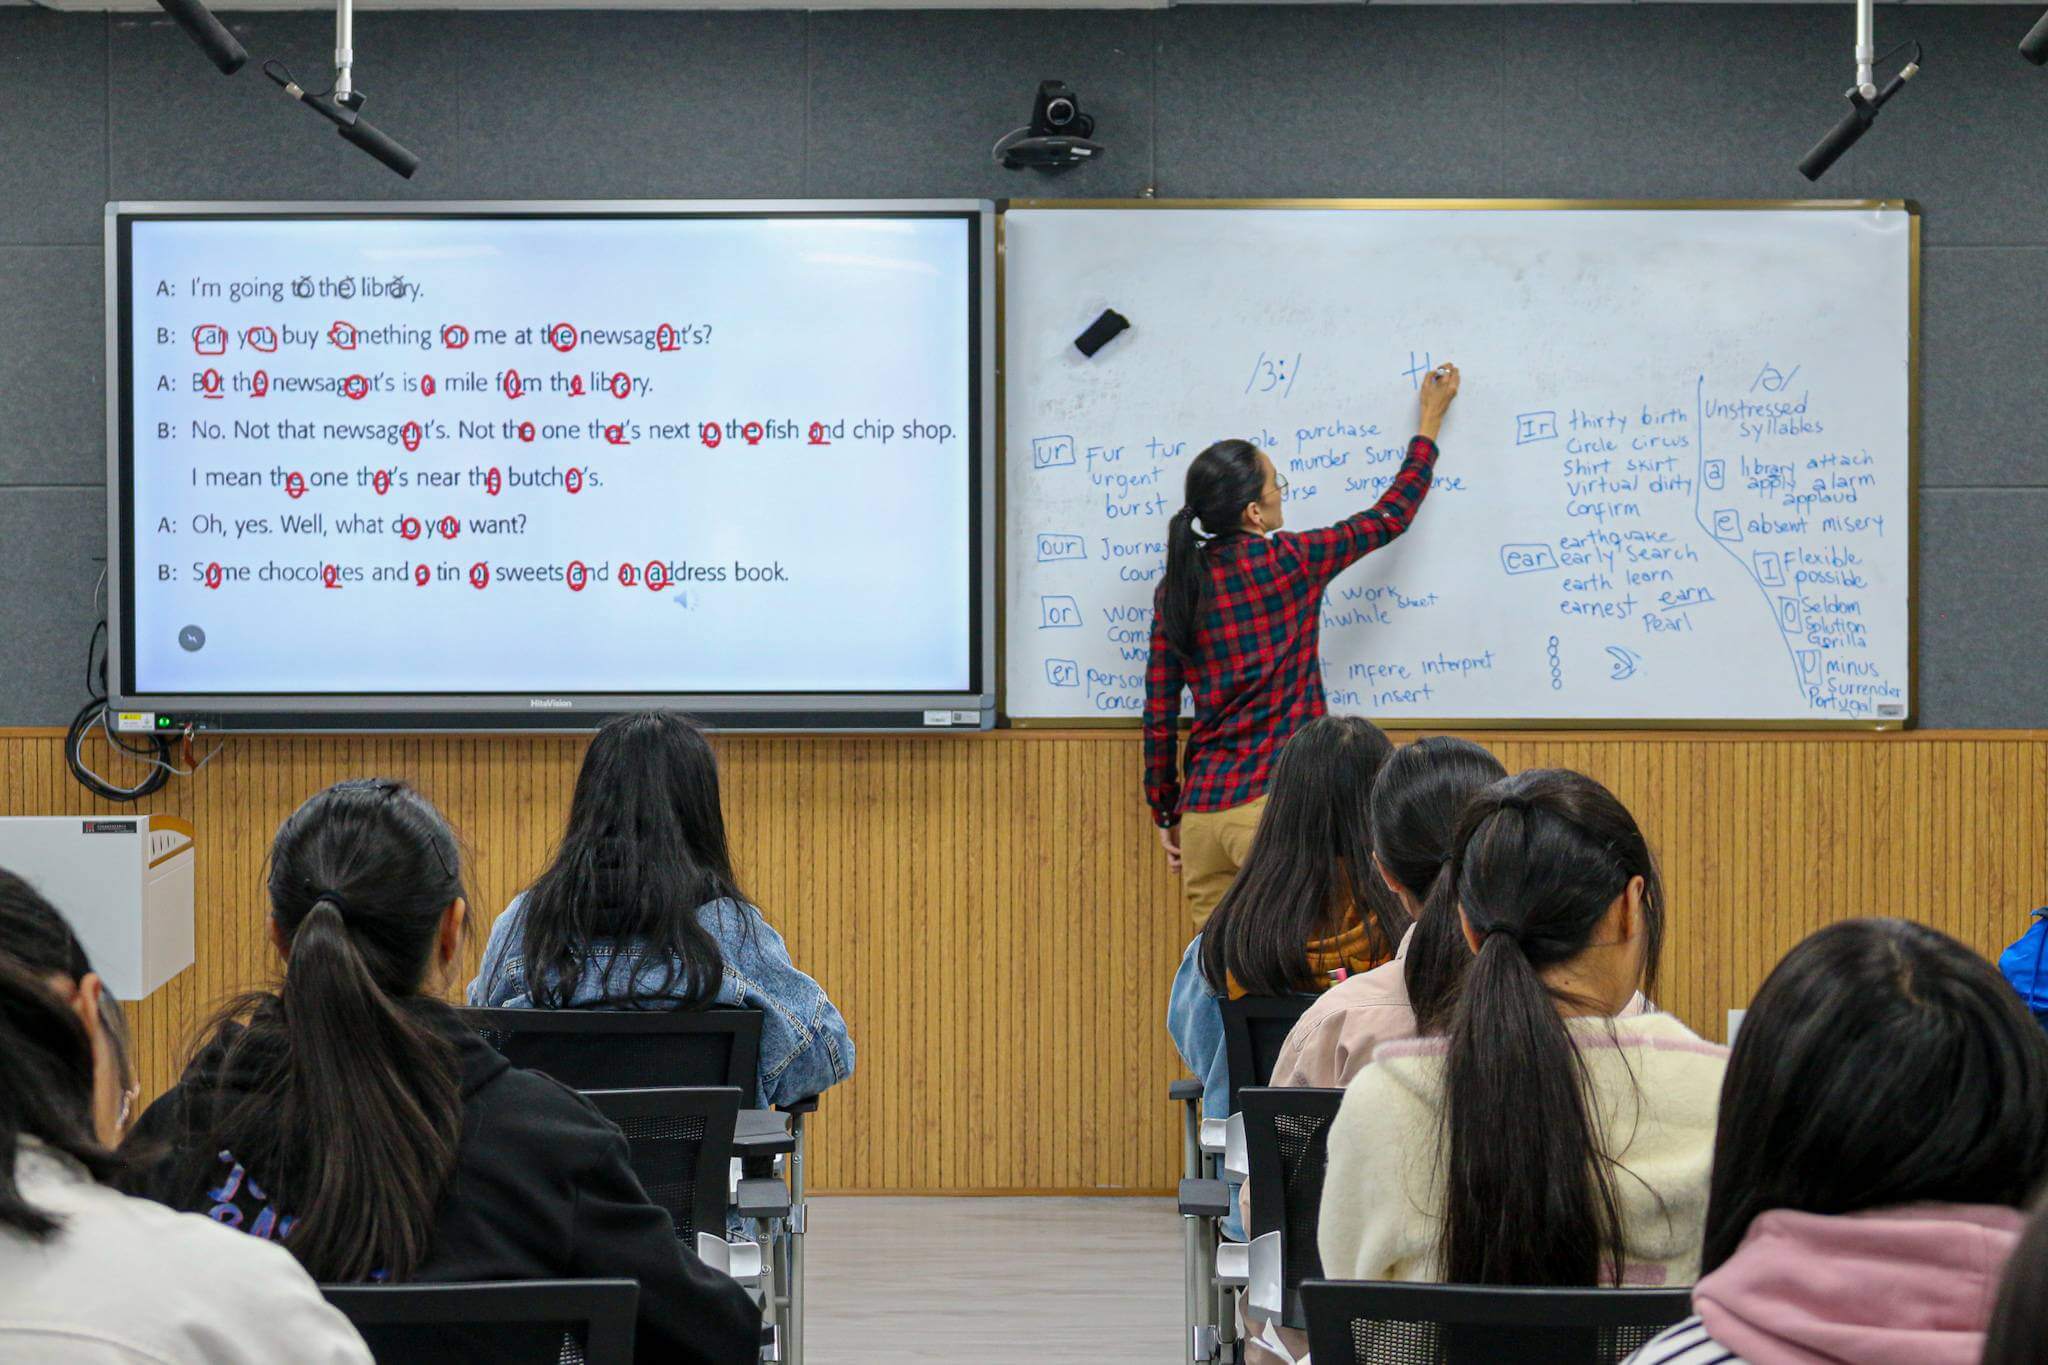 A: I'm going to the library.
B: Can you buy something for me at the newsagent's?
A: But the newsagent's is a mile from the library.
B: No. Not that newsagent's. Not the one that's next to the fish and chip shop.
I mean the one that's near the butcher's.
A: Oh, yes. Well, what do you want?
B: Some chocolates and a tin of sweets and an address book.
HitaVision
/ɜː/
ur Fur tur purchase
urgent murder
burst surge
our Journe
Court
or work sheet
hwhile
er person infere interpret
insert
Ir thirty birth
Circle circus
Shirt skirt
Virtual dirty
Confirm
earthquake
ear early Search
earth learn
earnest earn
Pearl
/ə/
Unstressed
Syllables
a library attach
apply alarm
applaud
e absent misery
I Flexible
possible
O Seldom
Solution
Gorilla
U minus
Surrender
Portugal